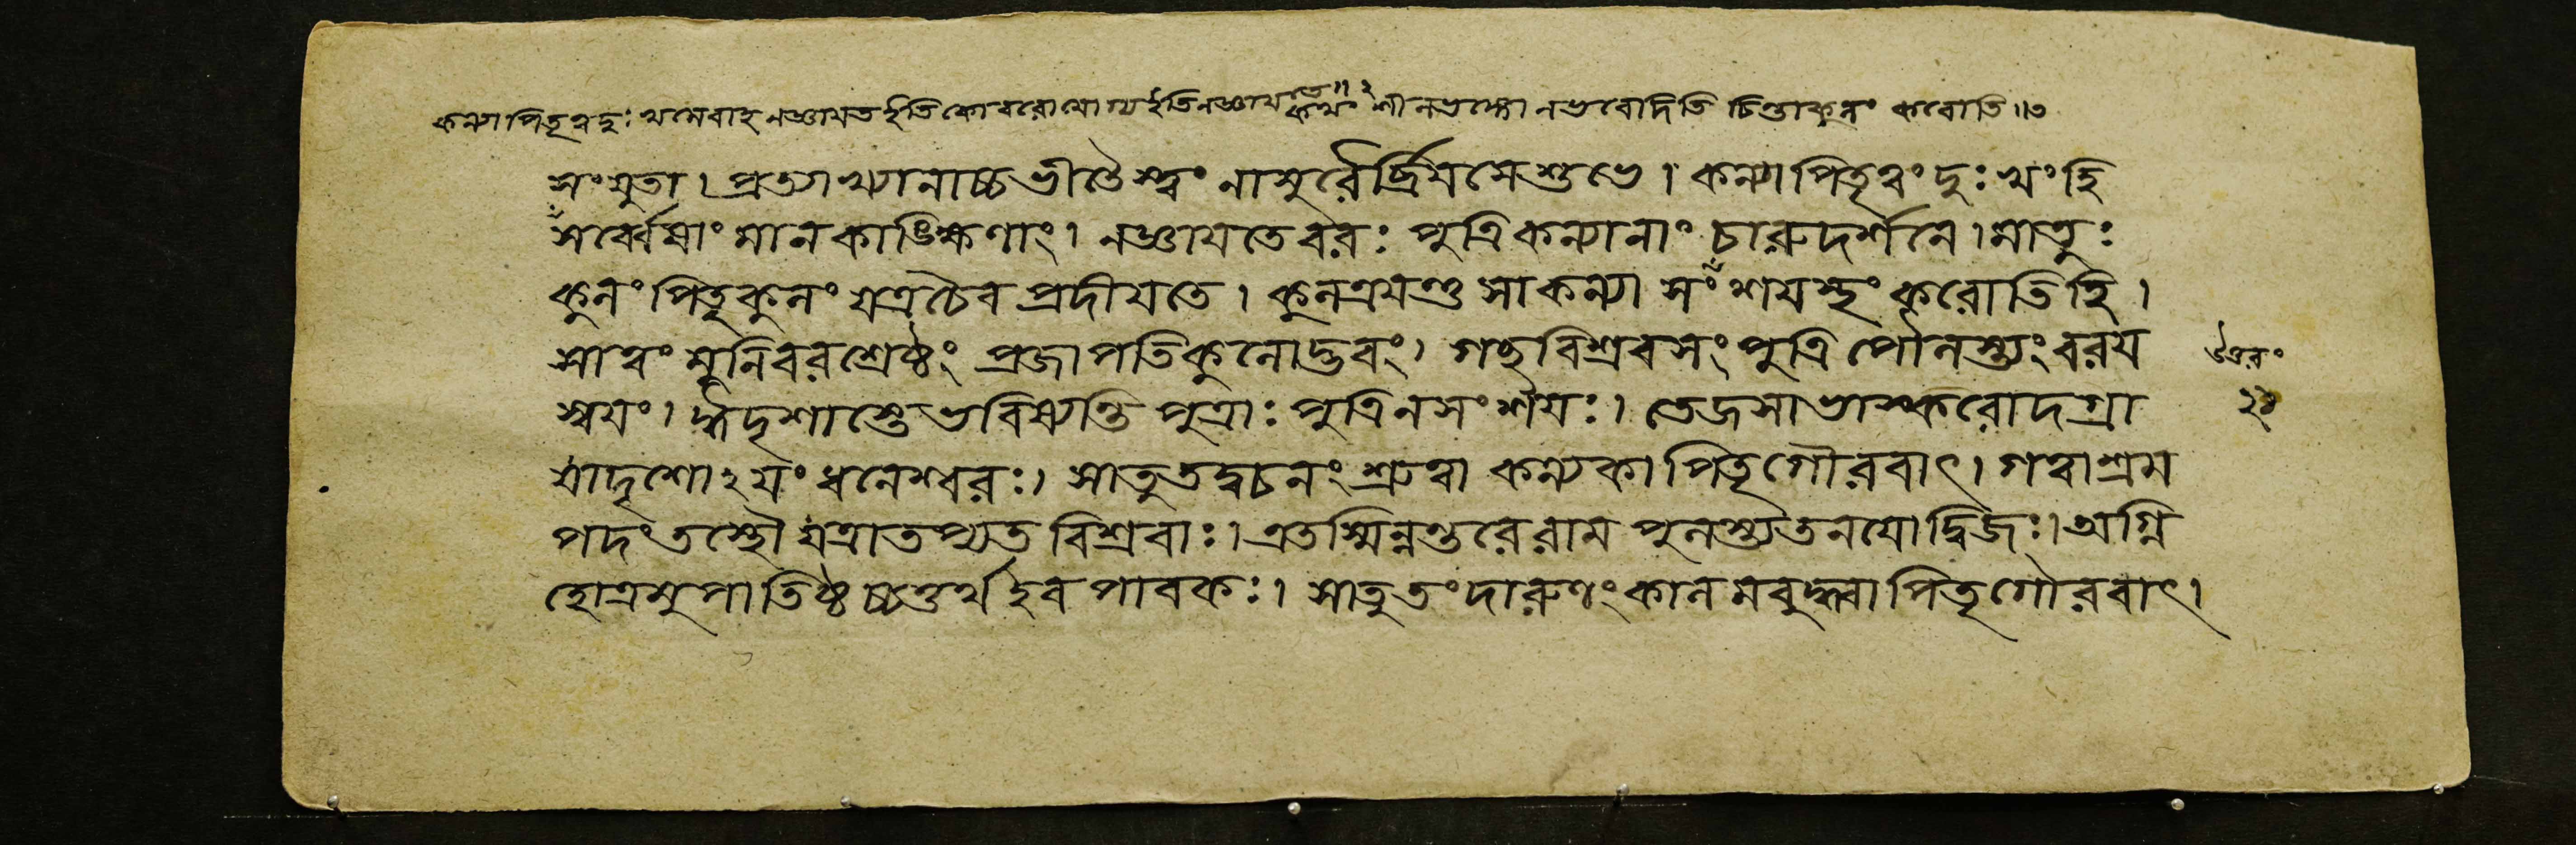 কন্যাপিতৃত্বদুঃখমেবাহ নজ্ঞায়ত ইতি কোবরোযোগ্য ইতি নজ্ঞায়তে॥২ কথং শীলভ্রংশো নভবেদিতি চিন্তাকুলং করোতি॥৩
সংযুতা। প্রত্যাখ্যানাচ্চভীতৈস্ত্বং নাসুরৈর্ব্রিয়সেশুভে। কন্যাপিতৃত্বং দুঃখংহি
সর্ব্বেষাং মানকাঙ্ক্ষিণাং। নজ্ঞায়তেবরঃ পুত্রি কন্যানাং চারুদর্শনে। মাতুঃ
কুলং পিতৃকুলং যত্রচৈব প্রদীয়তে। কুলত্রয়ন্তু সাকন্যা সংশয়স্থং করোতিহি।
সাত্বং মুনিবরশ্রেষ্ঠং প্রজাপতিকুলোদ্ভবং। গচ্ছবিশ্রবসং পুত্রি পৌলস্ত্যং বরয়
উত্তরং
স্বয়ং। ঈদৃশাস্তেভবিষ্যন্তি পুত্রাঃ পুত্রিনসংশয়ঃ। তেজসাভাস্করোদগ্রা
২২
যাদৃশোঽয়ং ধনেশ্বরঃ। সাতুতদ্বচনং শ্রুত্বা কন্যকা পিতৃগৌরবাৎ। গত্বাশ্রম
পদং তস্থৌ যত্রাতপ্যত বিশ্রবাঃ। এতস্মিন্নন্তরেরাম পুলস্ত্যতনয়োদ্বিজঃ। অগ্নি
হোত্রমুপাতিষ্ঠচ্চতুর্থ ইব পাবকঃ। সাতুতং দারুণং কালমবুদ্ধ্বা পিতৃগৌরবাৎ।